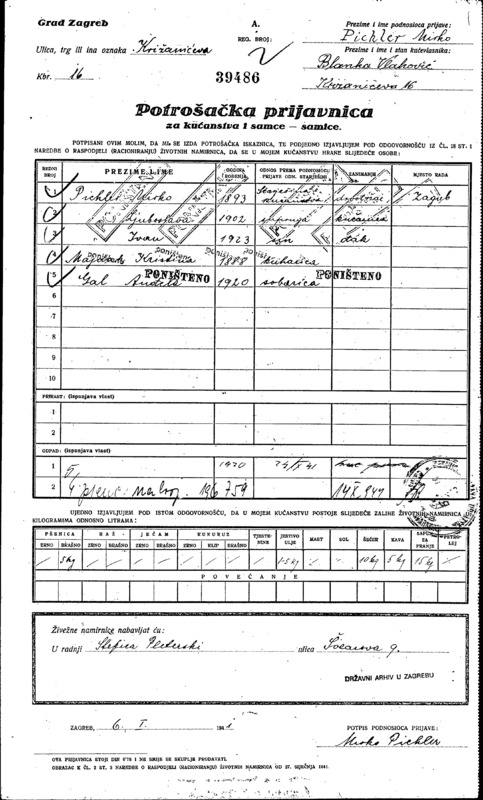 Grad Zagreb
Ulica, trg ili ina oznaka Križanićeva
Kbr. 16
A.
REG. BROJ:
2
39486
Prezime i ime podnosioca prijave:
Pichler Mirko
Prezime i ime i stan kućevlasnika:
Blanka Vlahović
Križanićeva 16
Potrošačka prijavnica
za kućanstva i samce — samice.
POTPISANI OVIM MOLIM, DA MI SE IZDA POTROŠAČKA ISKAZNICA, TE PODJEDNO IZJAVLJUJEM POD ODGOVORNOŠĆU IZ ČL. 18 ST. 1
NAREDBE O RASPODJELI (RACIONIRANJU) ŽIVOTNIH NAMIRNICA, DA SE U MOJEM KUĆANSTVU HRANE SLIJEDEĆE OSOBE:
REDNI BROJ PREZIME I IME GODINA ROĐENJA ODNOS PREMA PODNOSIOCU PRIJAVE ODN. STARJEŠINI ZANIMANJE MJESTO RADA
1 Pichler Mirko 1893 kućanstva Zagreb
2 Ljuboslava 1902 supruga kućanica
3 Ivan 1923 sin đak
4 Kristina 1888 kuharica
poništeno
5 Gal Anđela 1920 sobarica
PONIŠTENO PONIŠTENO
6
7
8
9
10
PRIRAST: (ispunjava vlast)
1
2
ODPAD: (ispunjava vlast)
1 1920
2 na broj 196759
UJEDNO IZJAVLJUJEM POD ISTOM ODGOVORNOŠĆU, DA U MOJEM KUĆANSTVU POSTOJE SLIJEDEĆE ZALIHE ŽIVOTNIH NAMIRNICA
U KILOGRAMIMA ODNOSNO LITRAMA:
PŠENICA RAŽ JEČAM KUKURUZ TJESTENINE JESTIVO ULJE MAST SOL ŠEĆER KAVA SAPUN ZA PRANJE PETROLEJ
ZRNO BRAŠNO ZRNO BRAŠNO ZRNO BRAŠNO ZRNO KLIP BRAŠNO
/ 5kg / / / / / / / / / / 10kg 5kg 15kg /
POVEĆANJE
Živežne namirnice nabavljat ću:
U radnji Štefica Pleterski ulica
DRŽAVNI ARHIV U ZAGREBU
ZAGREB, 6. I. 1941
POTPIS PODNOSIOCA PRIJAVE:
Mirko Pichler
OVA PRIJAVNICA STOJI DIN 0'75 I NE SMIJE SE SKUPLJE PRODAVATI.
OBRAZAC K ČL. 2 ST. 3 NAREDBE O RASPODJELI (RACIONIRANJU) ŽIVOTNIH NAMIRNICA OD 87. SIJEČNJA 1941.